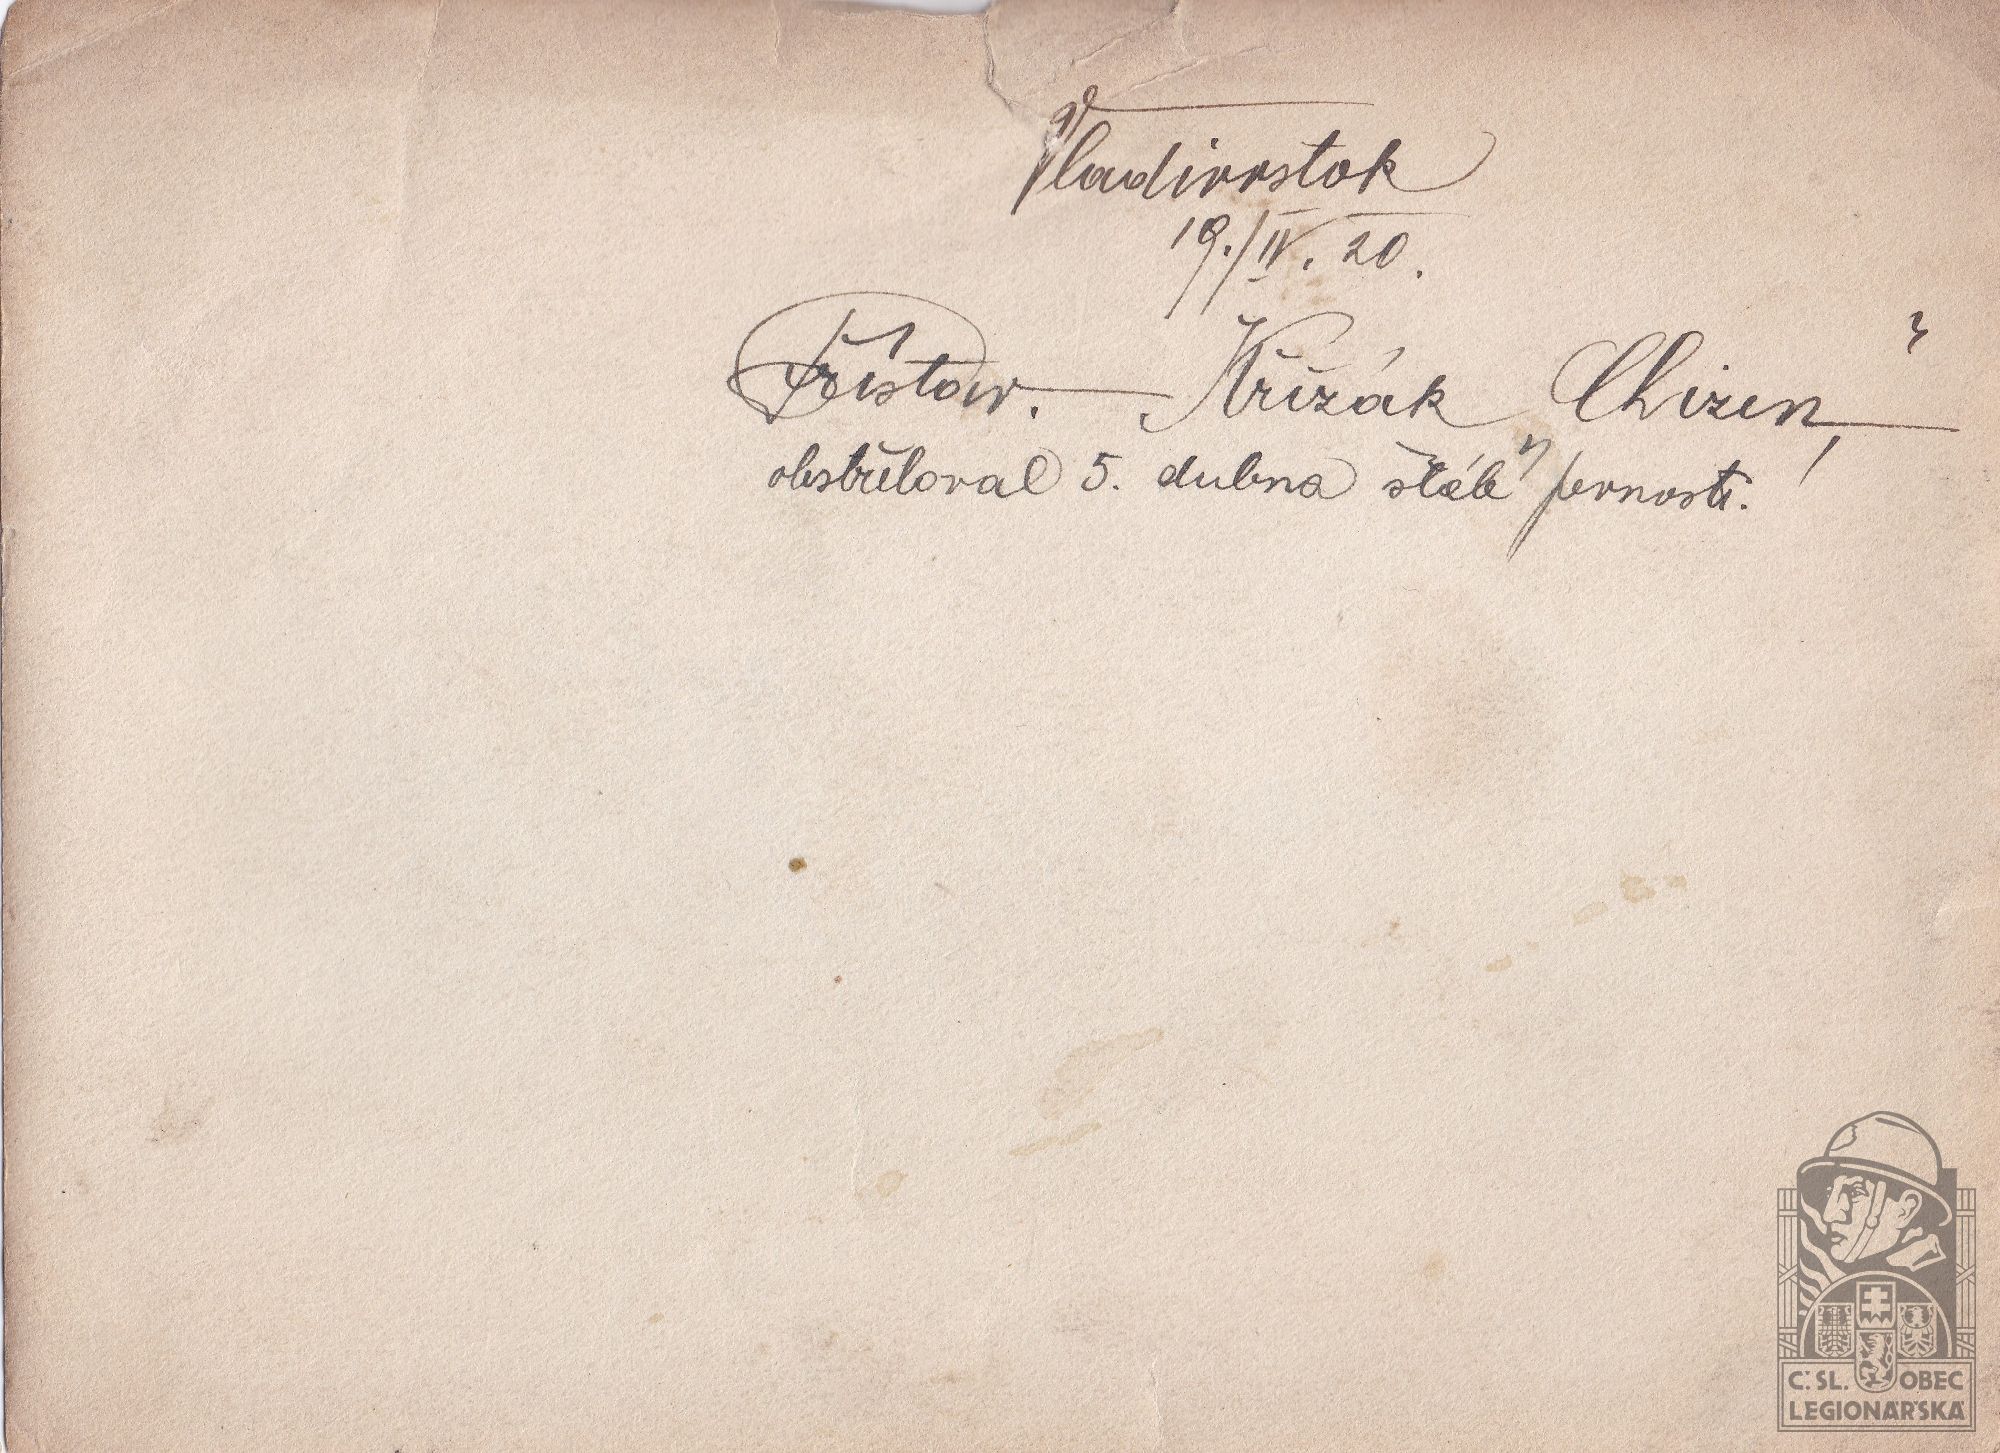 Vladivostok
19./IV. 20.
Přístav. Křižák Chizen,
obstřeloval 5. dubna štáb pevnosti.
Č.SL. OBEC
LEGIONÁŘSKÁ